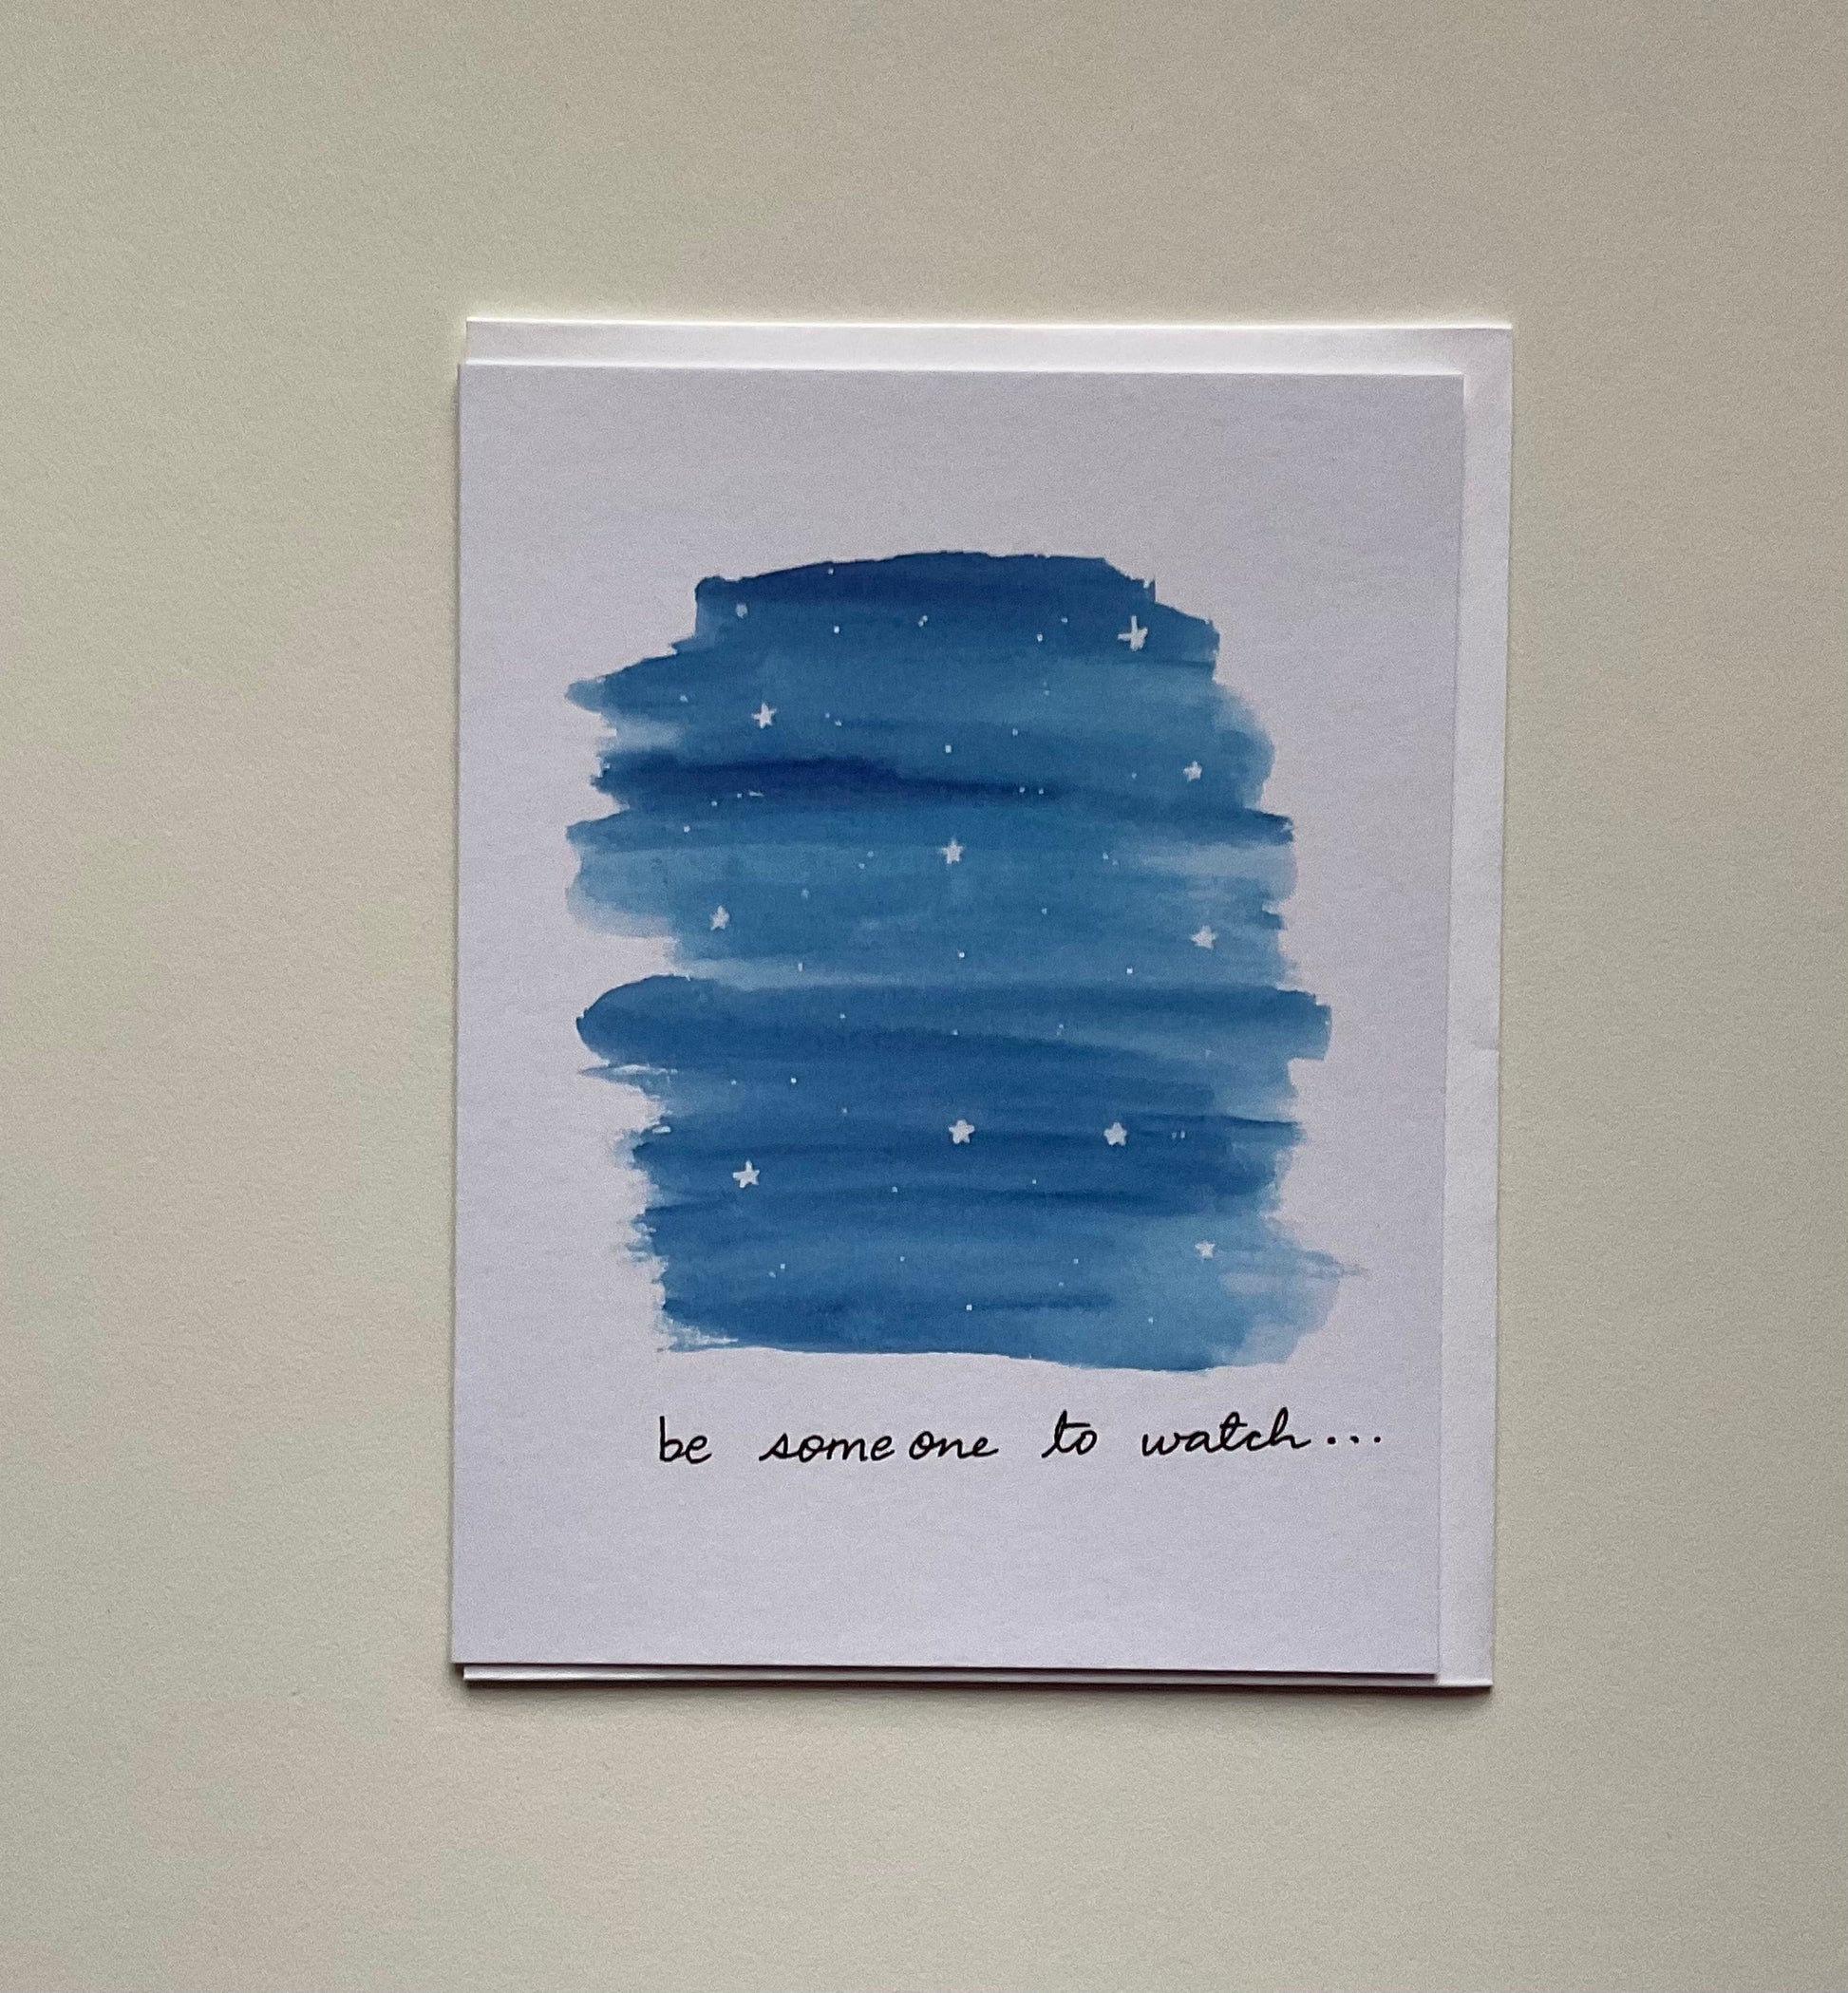 be someone to watch...